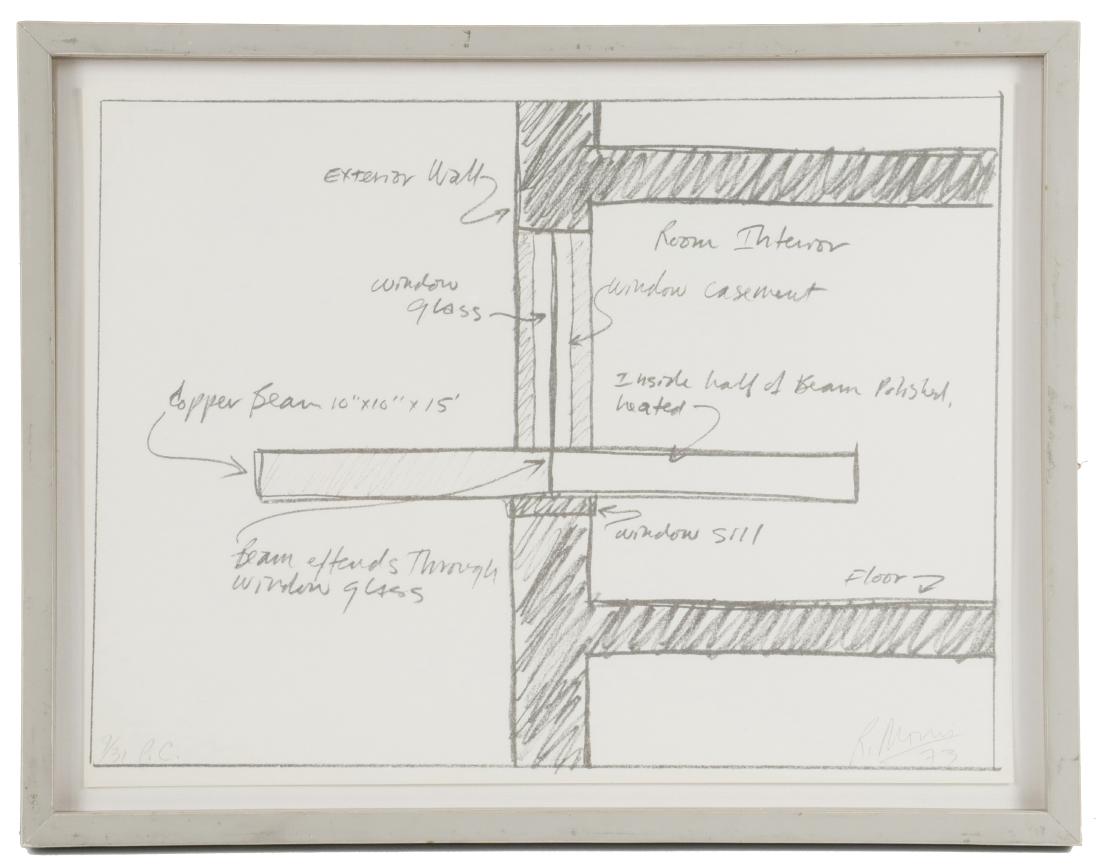 Exterior Wall
Room Interior
window
glass
window casement
Inside half of Beam Polished,
heated
Copper Beam 10"x10" x 15'
window sill
Beam extends Through
window glass
Floor
R. Morris
73